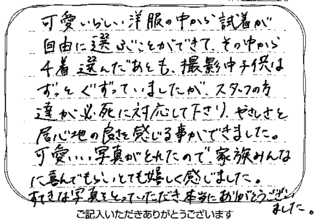 可愛いらしい洋服の中から試着が
自由に選ぶことができて、その中から
4着選んだあとも、撮影中子供は
ずっとぐずっていましたが、スタッフの方
達が必死に対応して下さり、やさしさと
居心地の良さを感じる事ができました。
可愛いい写真がとれたので、家族みんな
に喜んでもらい、とても嬉しく感じました。
すてきな写真をとっていただき本当にありがとうござい
ました。
ご記入いただきありがとうございます